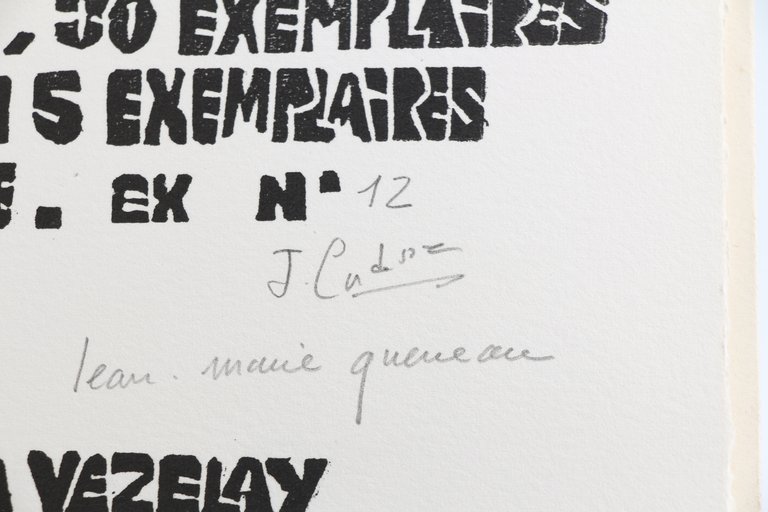 , 50 EXEMPLAIRES
15 EXEMPLAIRES
. EX N° 12
Jean. marie queneau
VEZELAY